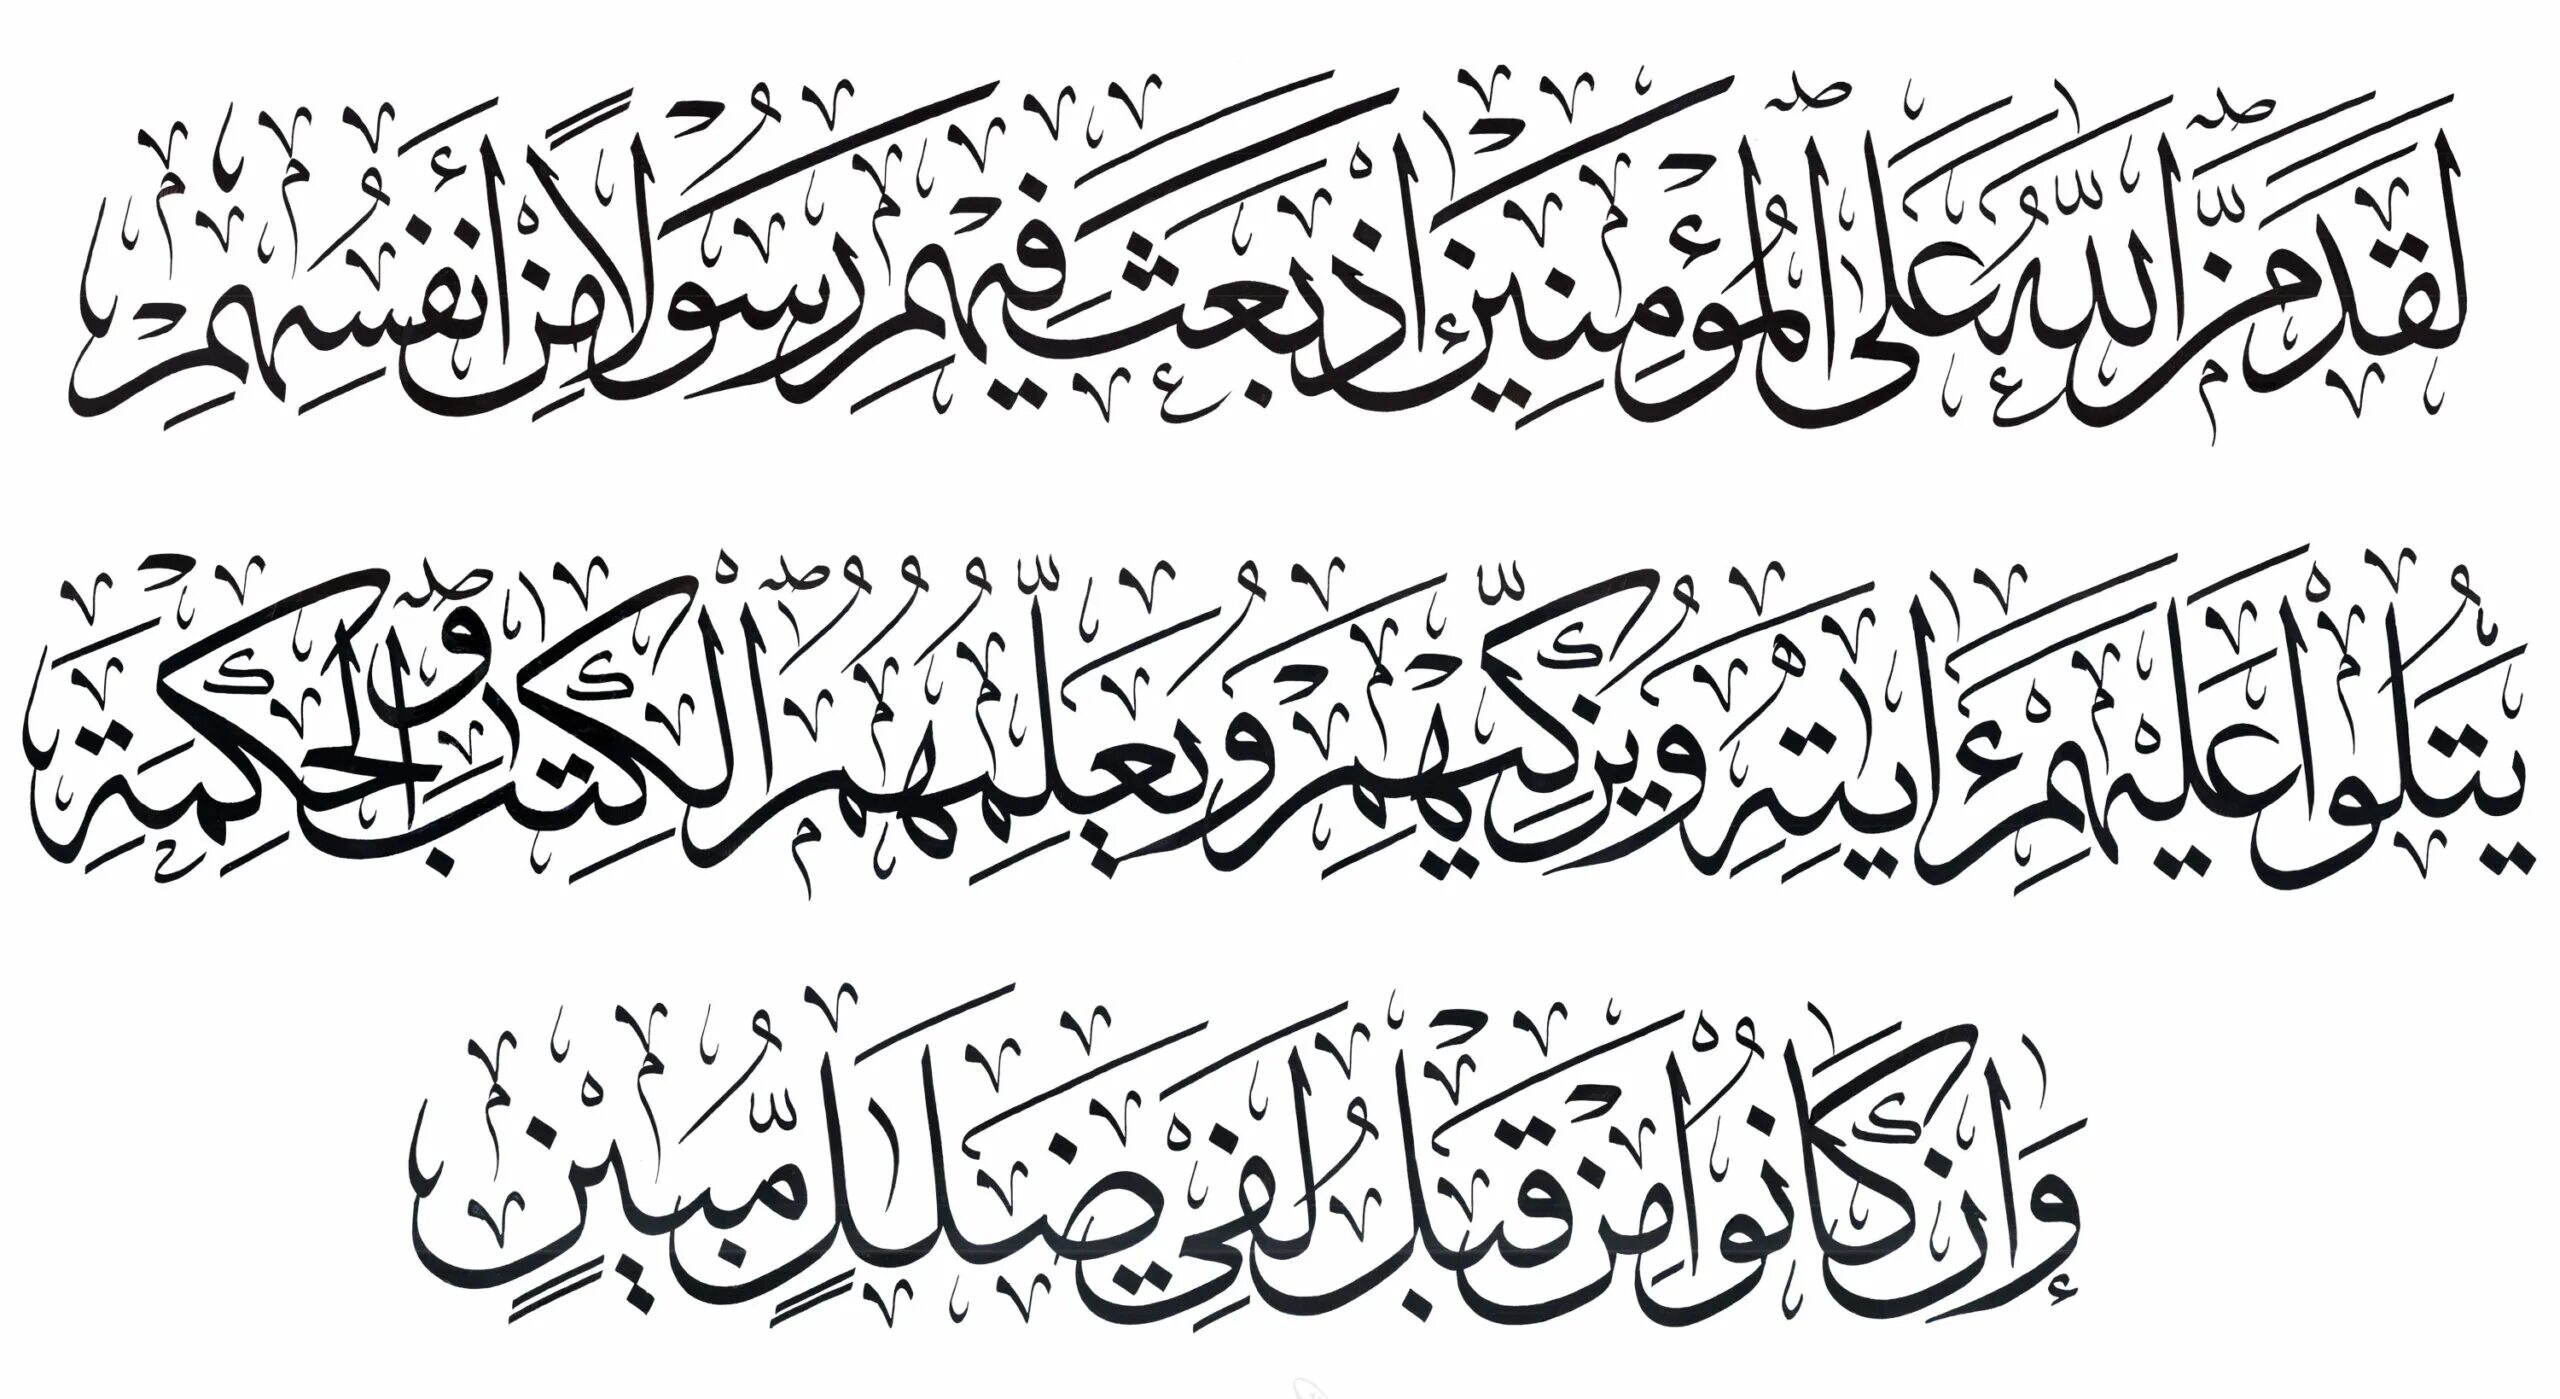 لَقَدْ مَنَّ اللَّهُ عَلَى الْمُؤْمِنِينَ إِذْ بَعَثَ فِيهِمْ رَسُولًا مِنْ أَنْفُسِهِمْ
يَتْلُوا عَلَيْهِمْ ءَايَٰتِهِ وَيُزَكِّيهِمْ وَيُعَلِّمُهُمُ الْكِتَٰبَ وَالْحِكْمَةَ
وَإِنْ كَانُوا مِنْ قَبْلُ لَفِي ضَلَٰلٍ مُّبِينٍ